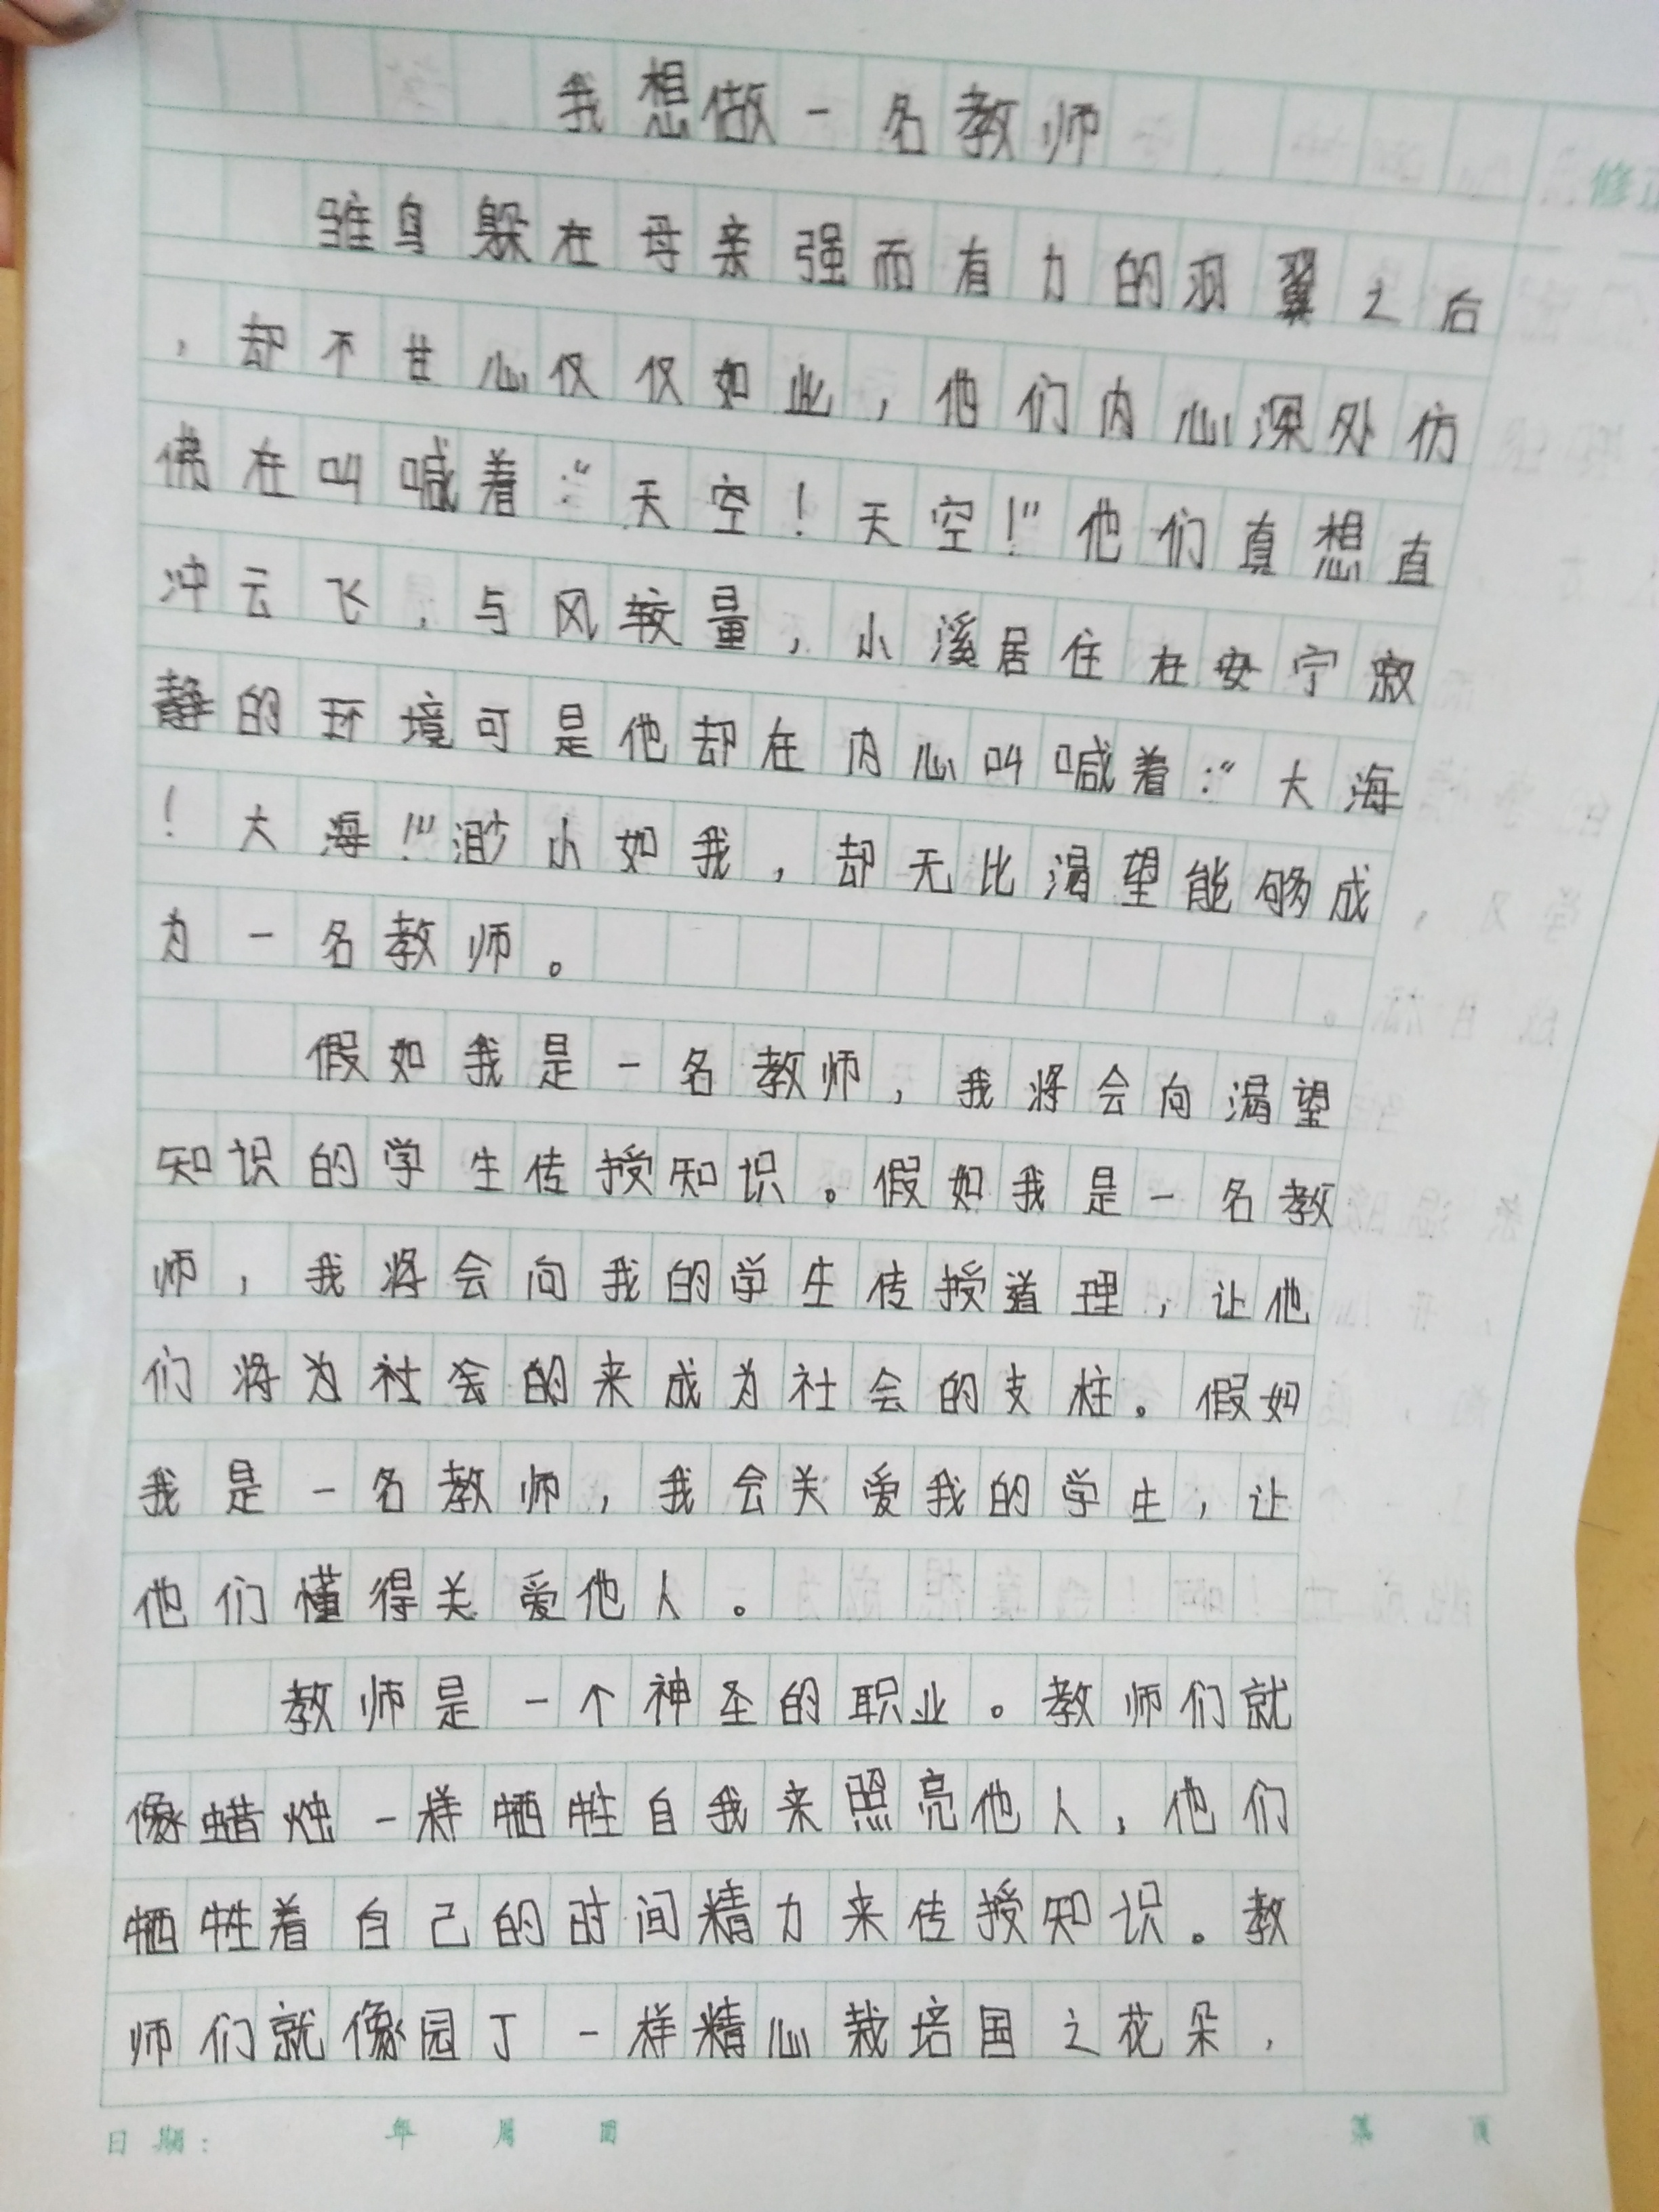 我想做一名教师
修正
雏鸟躲在母亲强而有力的羽翼之后
，却不甘心仅仅如此，他们内心深处仿
佛在叫喊着：“天空！天空！”他们真想直
冲云飞，与风较量，小溪居住在安宁寂
静的环境可是他却在内心叫喊着：“大海
！大海！”渺小如我，却无比渴望能够成
为一名教师。
假如我是一名教师，我将会向渴望
知识的学生传授知识。假如我是一名教
师，我将会向我的学生传授道理，让他
们将为社会的来成为社会的支柱。假如
我是一名教师，我会关爱我的学生，让
他们懂得关爱他人。
教师是一个神圣的职业。教师们就
像蜡烛一样牺牲自我来照亮他人，他们
牺牲着自己的时间精力来传授知识。教
师们就像园丁一样精心栽培国之花朵，
日期： 年 月 日 第 页